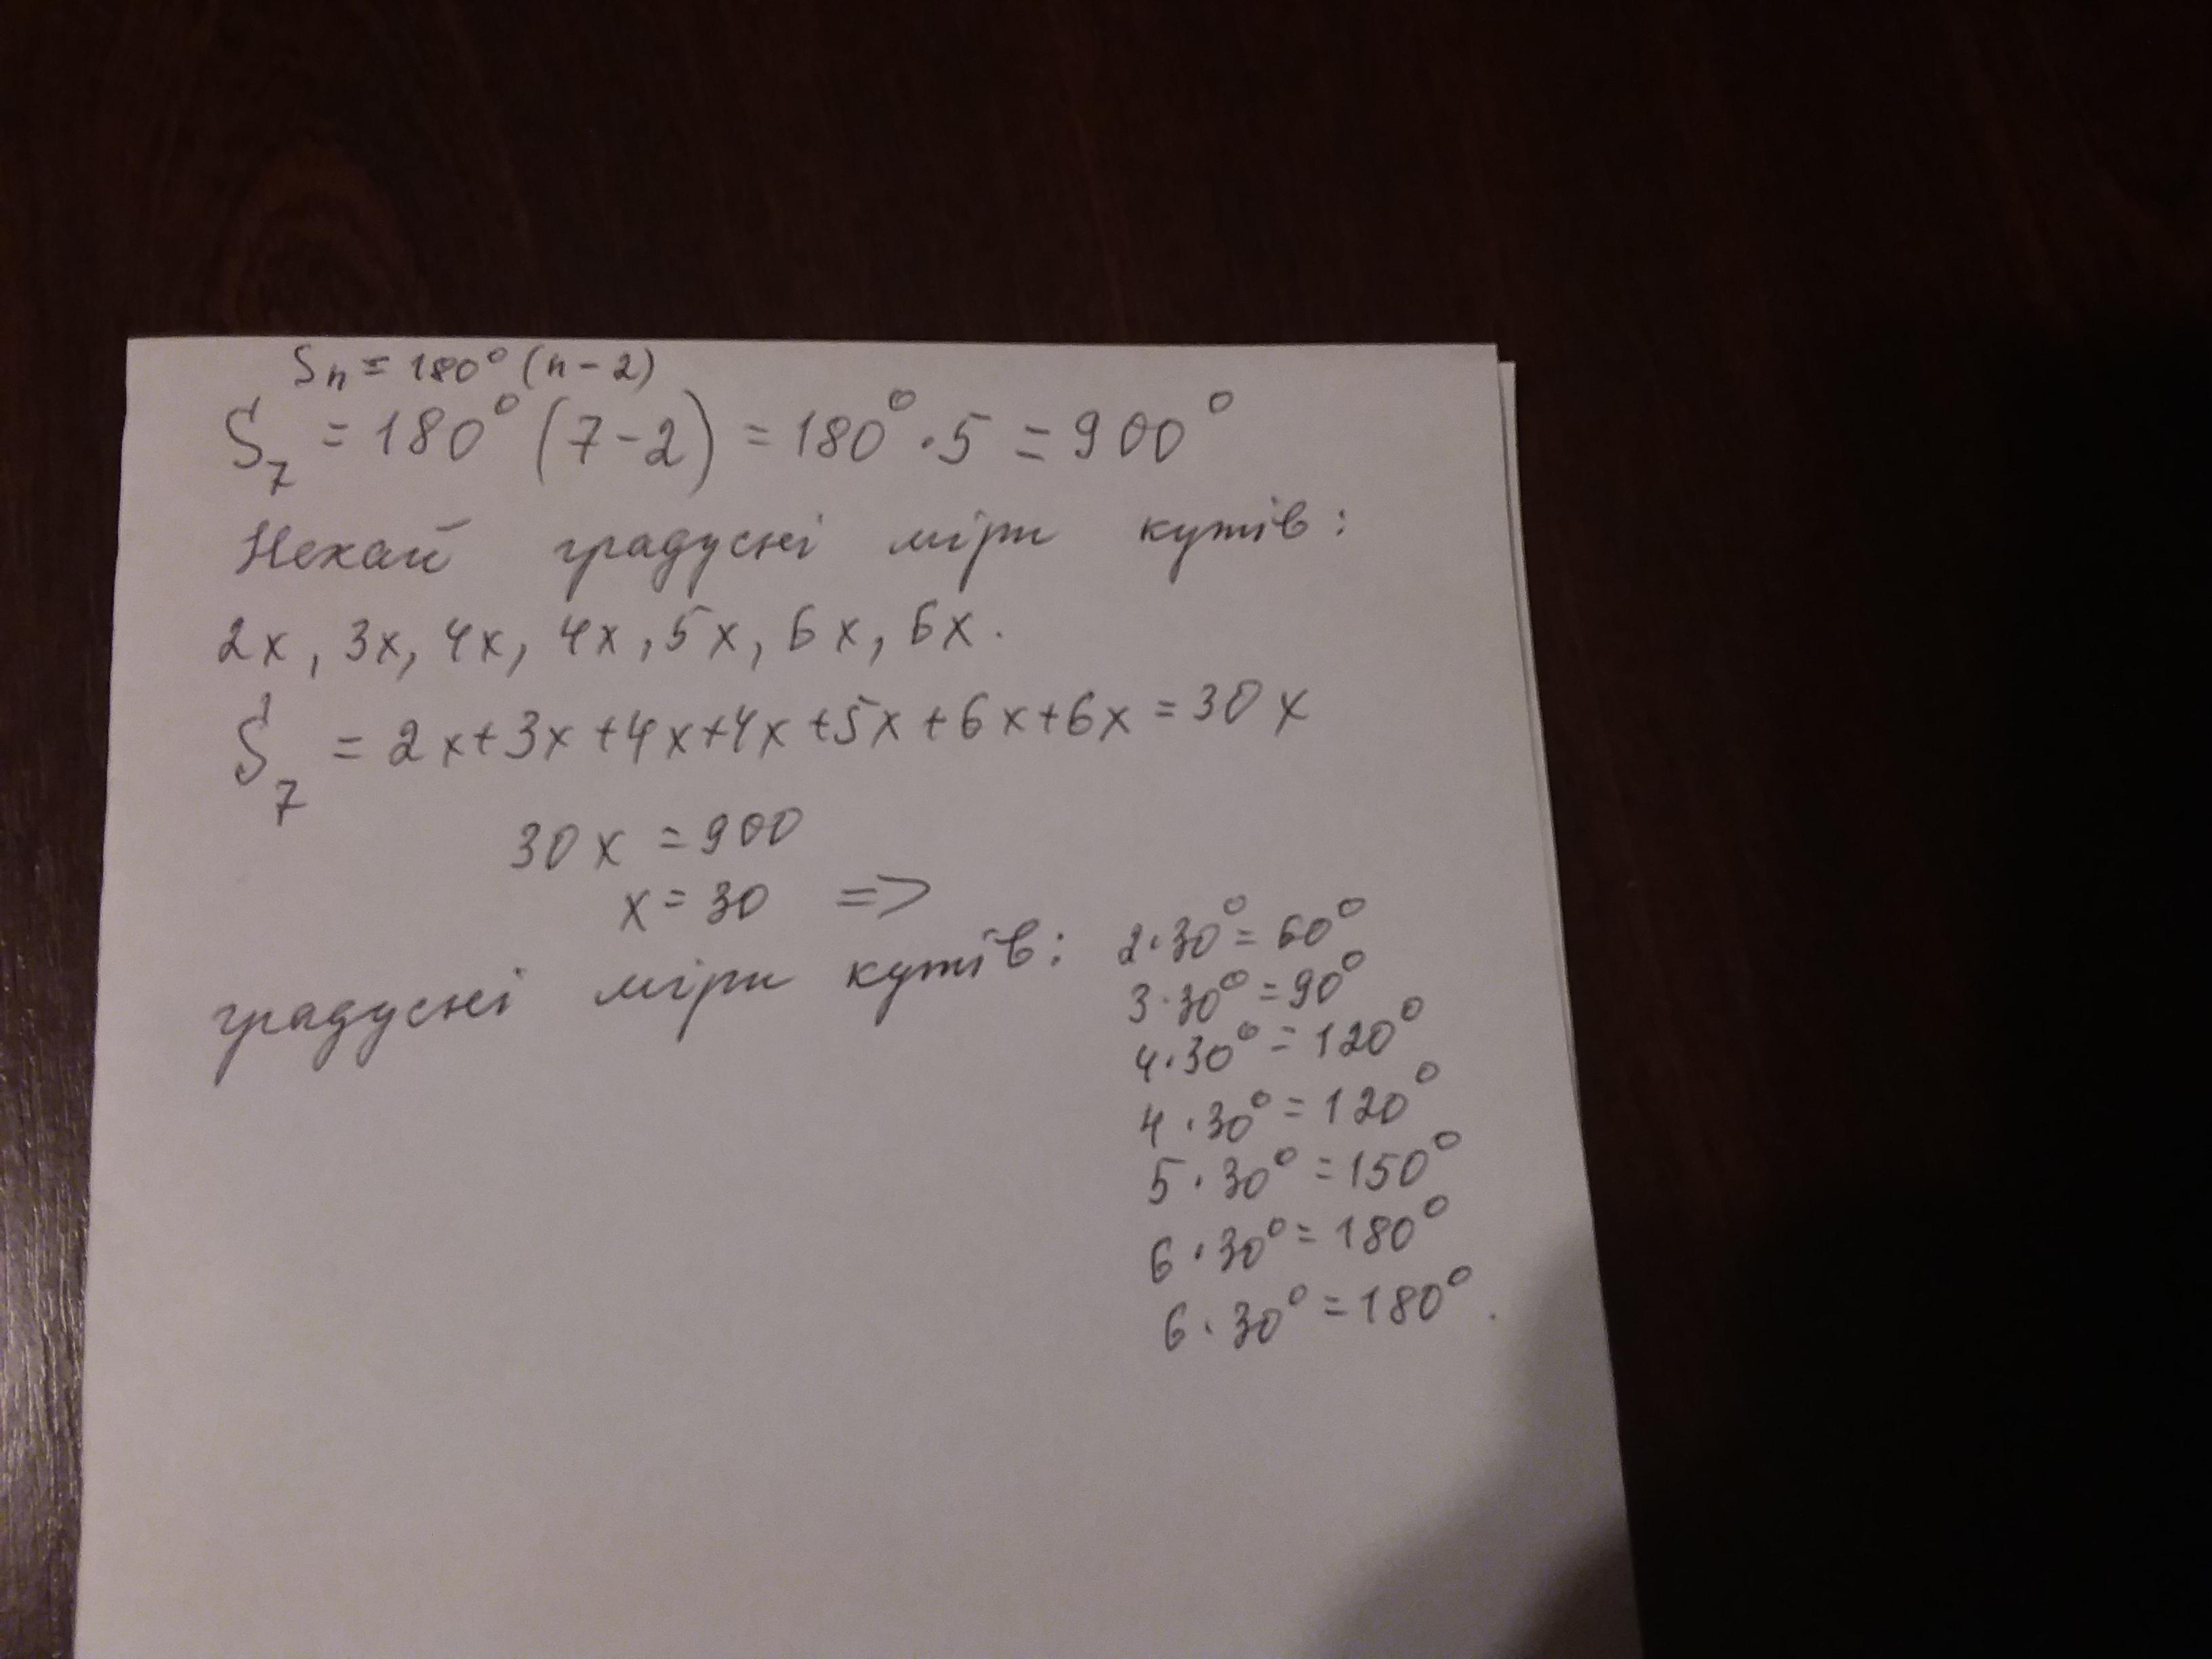 Sn = 180° (n - 2)
S₇ = 180° (7 - 2) = 180° · 5 = 900°
Нехай градусні міри кутів:
2x, 3x, 4x, 4x, 5x, 6x, 6x.
S₇ = 2x+3x+4x+4x+5x+6x+6x = 30x
30x = 900
x = 30 =>
градусні міри кутів: 2·30° = 60°
3·30° = 90°
4·30° = 120°
4·30° = 120°
5·30° = 150°
6·30° = 180°
6·30° = 180°.